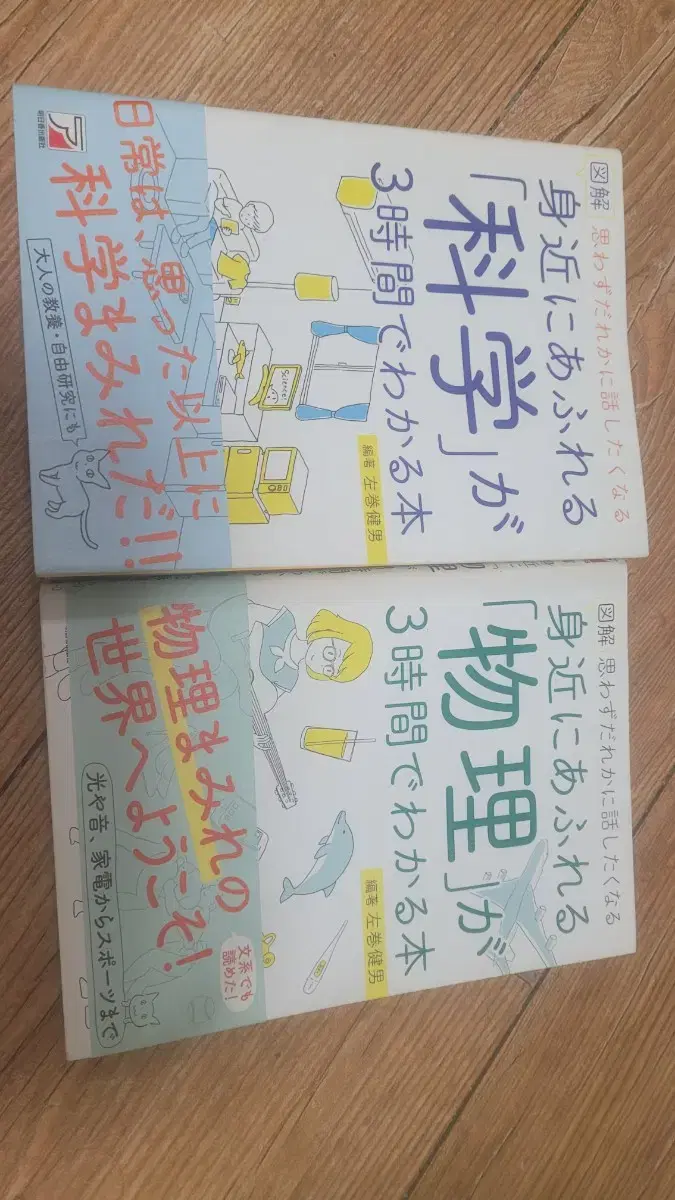 図解 思わずだれかに話したくなる
身近にあふれる
「科学」が
3時間でわかる本
編著 左巻健男
Science!
日常は、思った以上に
科学まみれだ!!
大人の教養・自由研究にも
ア
明日香出版社
図解 思わずだれかに話したくなる
身近にあふれる
「物理」が
3時間でわかる本
編著 左巻健男
物理まみれの
世界へようこそ!
文系でも
読めた!
光や音、家電からスポーツまで